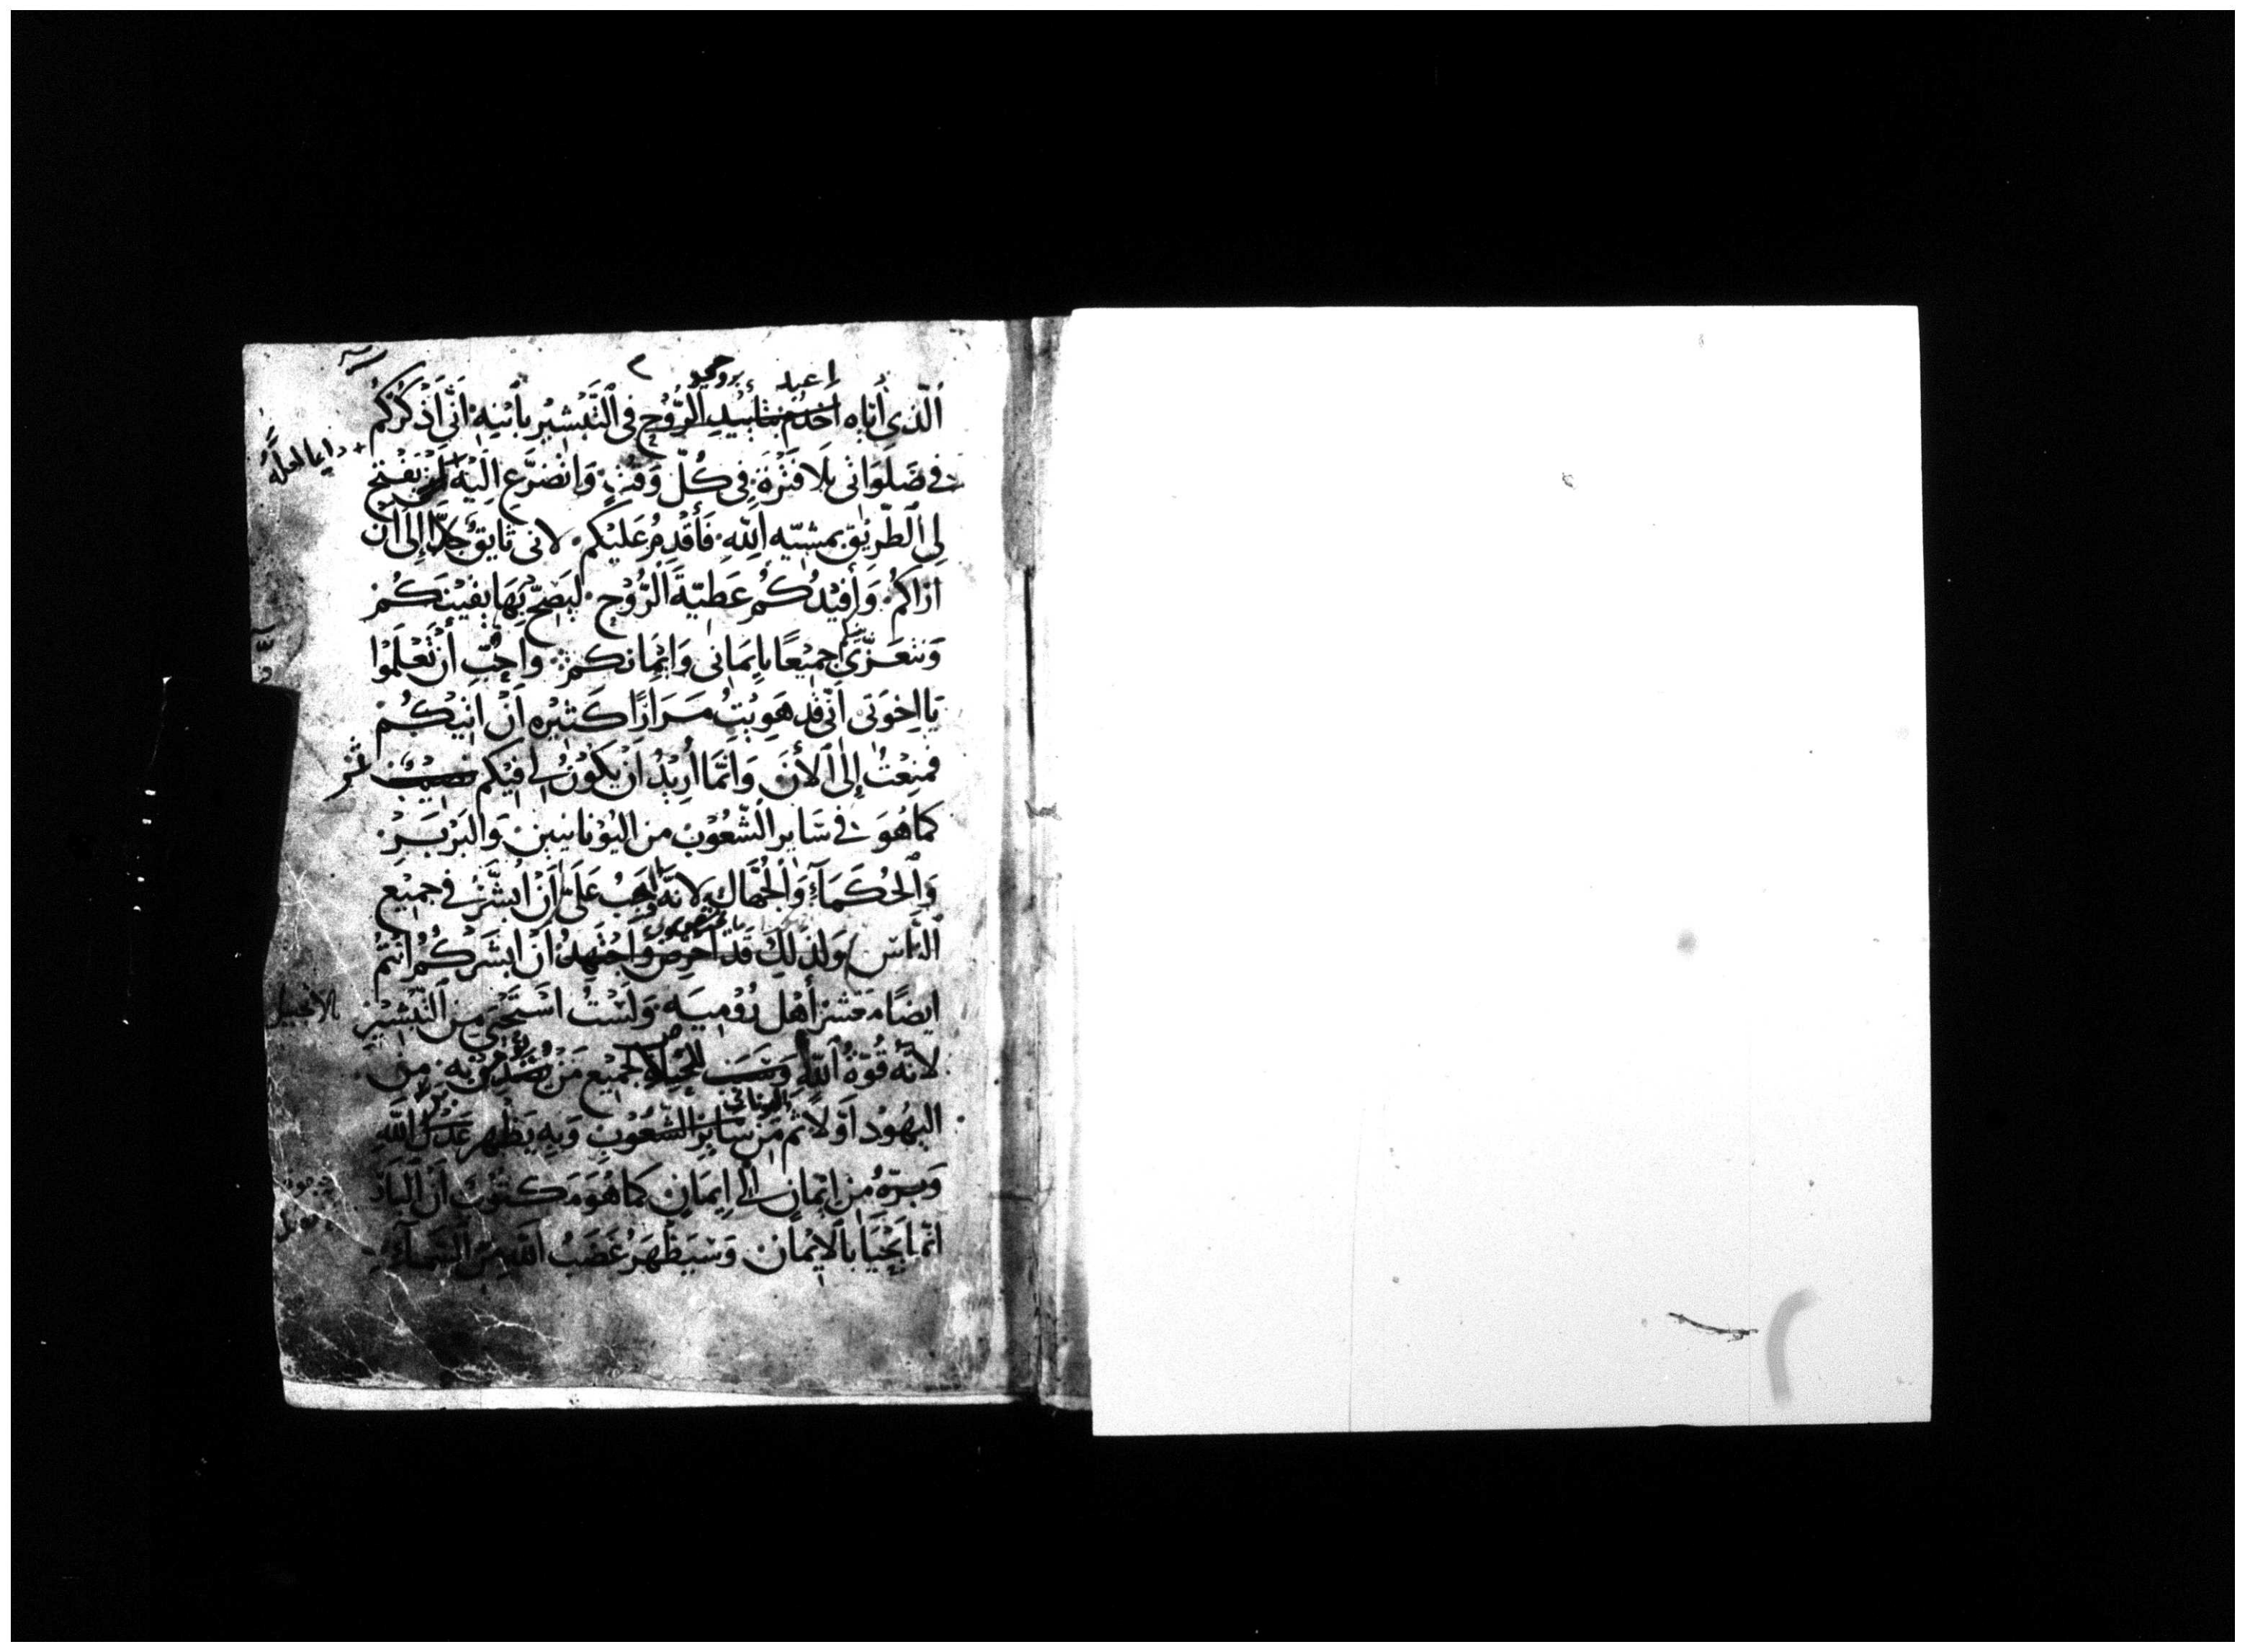 اعبد بروحى
الَّذِى أيَّاهُ أخدُمُ بتَأييدِ الرُّوحِ فى التَّبْشِيرِ بأبنِهِ أنّى أذْكُرُكُم
دايما لعله
فى صَلَواتى بلَا فَتْرَةٍ فى كُلّ وَقتٍ وَاتضرَّع إليْهِ يَفْتح
لِى الطَّرِيْقَ بمشيّه اللهِ فَأقْدِمُ عَليْكُم لانى تَايقٌ جِدًّا إلى انْ
ارَاكُم وَأُفيْدُكُم عَطيَّةَ الرُّوْح ليَصِحَّ بهَا يقيْنَكُمْ
وَنتعَزَّى جميْعًا بايمَانى وَايْمَانكم وأحِبّ أنْ تَعْلَمُوا
يَا اخوَتى انّى قد هَويْتُ مرَارًا كَثيْرَه أنْ اتيْكُم
فمنِعْتُ إلى الأنَ وَانّمَا أُرِيْدُ انْ يَكُونُ لى فيْكم نصيْبٌ ثمر
كما هُوَ فى سَايرِ الشّعُوْبِ من اليُوْنانيين وَالبَرْبَرْ
وَالحُكَمَآءِ وَالجُهَّالِ لانّهُ وَاجبٌ عَلىَّ أنْ ابشِّرُ فى جميْع
النَّاسِ وَلذلِكَ قَد احْرصُ وَاجْتَهِدُ انْ ابشّرَكُمُ انْتُمْ
ايضًا مَعْشرَ أهْل رُوْميَه وَلَسْتُ اسْتَحْيى مِنَ التَّبْشِيْرِ
الانجيل
لانّهُ قُوّةُ اللهِ وَسَبَبُ لجَميْع مَنْ يُصَدِّقُ بِهِ مِن
اليونانى
اليَهُوْد أوَّلًا ثمّ مِنْ سَايرِ الشُّعُوْبِ وَبِهِ يَظهرُ عَدْلُ اللهِ
وَبرّهُ مِنْ ايْمانٍ الى ايمَانٍ كما هُوَ مَكتوْبٌ أنّ البَارّ
انّما يَحْيَا بالايْمان وَسَيَظْهَرُ غَضَبُ اللهِ مِنَ السَّمَآءِ